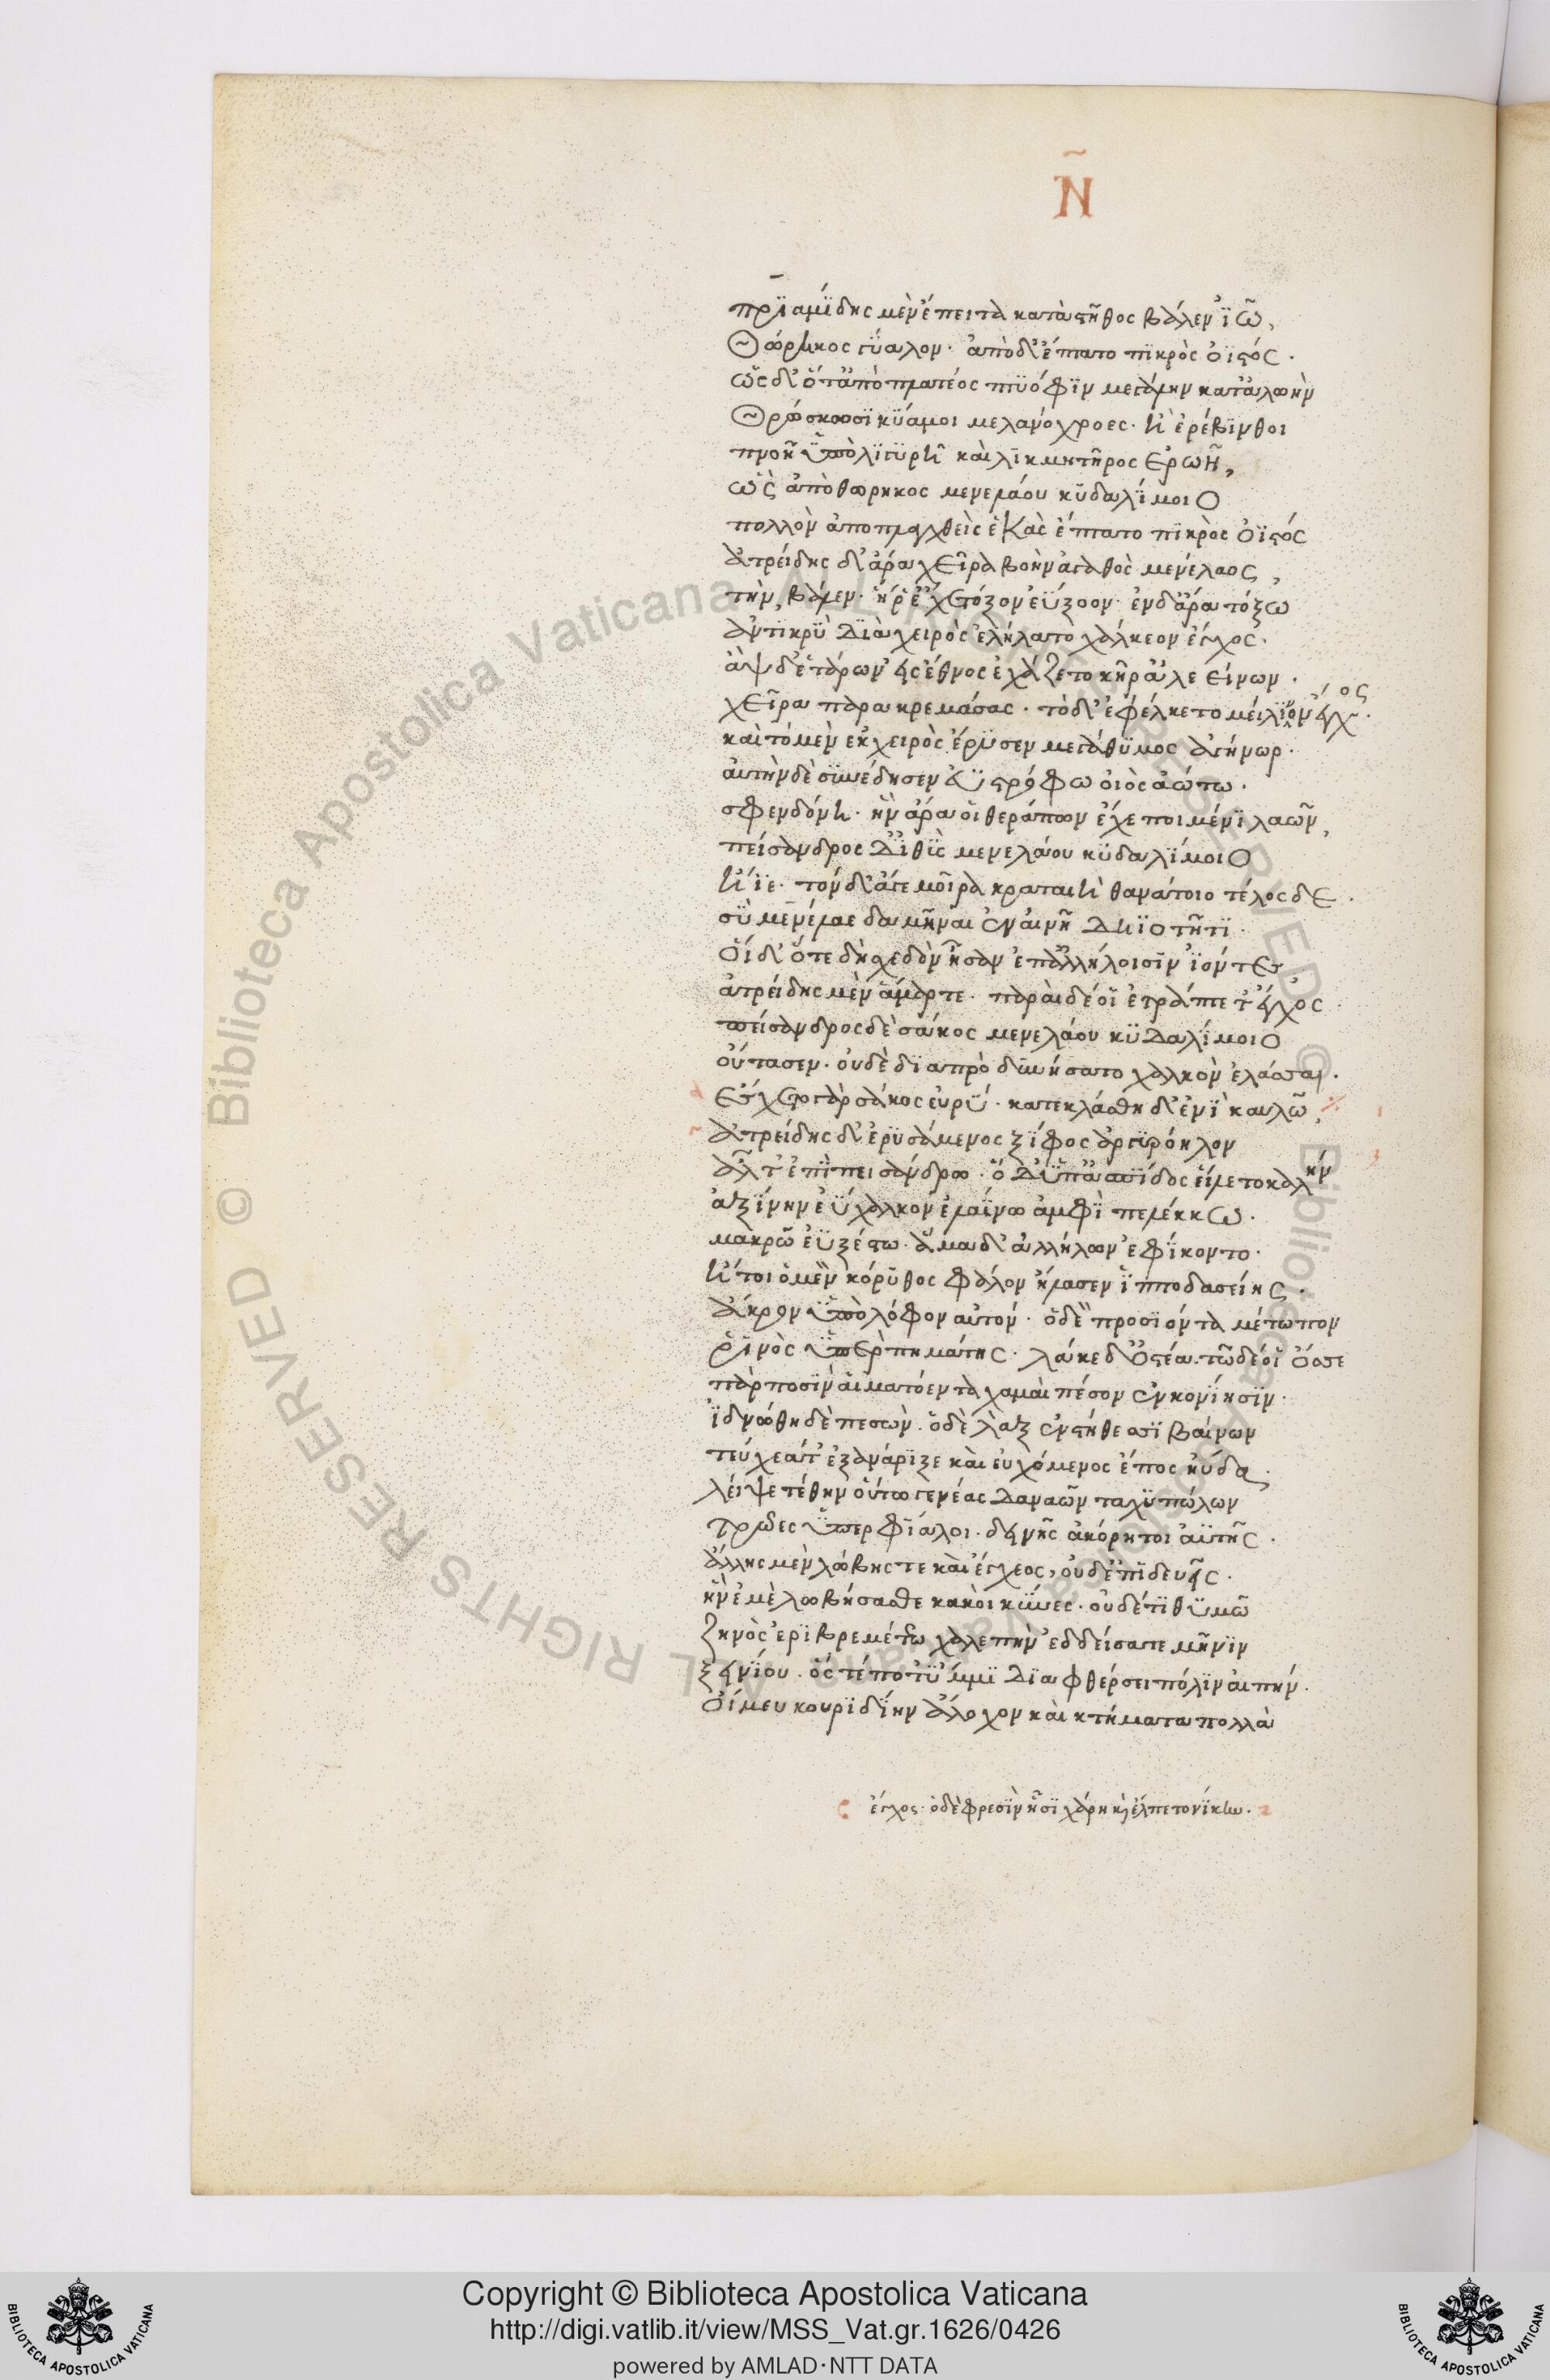 Ν̃
πρϊαμίδης μὲν ἔπειτα κατὰ στῆθος βάλεν ἰῶ,
Θώρηκος γύαλον· ἀπὸ δ' ἔπτατο πικρὸς ὀϊστός·
ὡς δ' ὅτ' ἀπὸ πλατέος πτυόφιν μεγάλην κατ' ἀλωὴν
Θρώσκωσι κύαμοι μελανόχροες· ἢ ἐρέβινθοι
πνοιῆ ὑπὸ λιγυρῆ καὶ λικμητῆρος ἐρωῆ,
ὡς ἀπὸ θώρηκος μενελάου κυδαλίμοιο
πολλὸν ἀποπλαγχθεὶς ἑκὰς ἔπτατο πικρὸς ὀϊστός
ἀτρείδης δ' ἄρα χεῖρα βοὴν ἀγαθὸς μενέλαος,
τὴν βάλεν· ἧ ῥ' ἔχε τόξον ἐΰξοον· ἐν δ' ἄρα τόξω
ἀντικρὺ διὰ χειρὸς ἐλήλατο χάλκεον ἔγχος·
ἂψ δ' ἑτάρων εἰς ἔθνος ἐχάζετο κῆρ' ἀλεείνων·
χεῖρα παρακρεμάσας· τὸ δ' ἐφέλκετο μείλινον ἔγχος·
καὶ τὸ μὲν ἐκ χειρὸς ἔρυσεν μεγάθυμος ἀγήνωρ·
αὐτὴν δὲ συνέδησεν ἐϋστρόφω οἰὸς ἀώτω·
σφενδόνη· ἣν ἄρα οἱ θεράπων ἔχε ποιμένι λαῶν,
πείσανδρος δ' ἰθὺς μενελάου κυδαλίμοιο
ἤϊε· τὸν δ' ἄγε μοῖρα κραταιὴ θανάτοιο τέλος δε·
σοὶ μενέλαε δαμῆναι ἐν αἰνῆ δηϊοτῆτι·
Οἱ δ' ὅτε δὴ σχεδὸν ἦσαν ἐπ' ἀλλήλοισιν ἰόντες
ἀτρείδης μὲν ἅμαρτε· παραὶ δέ οἱ ἐτράπετ' ἔγχος·
πείσανδρος δὲ σάκος μενελάου κυδαλίμοιο
οὔτασεν· οὐδὲ διαπρὸ δυνήσατο χαλκὸν ἐλάσσαι·
ἔσχετο γὰρ σάκος εὐρύ· κατεκλάσθη δ' ἐνὶ καυλῶ,
ἀτρείδης δ' ἐρυσάμενος ξίφος ἀργυρόηλον
ἆλτ' ἐπὶ πεισάνδρω· ὁ δ' ὑπ' ἀσπίδος εἵλετο καλὴν
ἀξίνην ἐΰχαλκον ἐλαΐνω ἀμφὶ πελέκκω·
μακρῶ ἐϋξέστω· ἅμα δ' ἀλλήλων ἐφίκοντο·
ἤτοι ὁ μὲν κόρυθος φάλον ἤλασεν ἱπποδασείης·
ἄκρον ὑπὸ λόφον αὐτόν· ὁ δὲ προσιόντα μέτωπον
ῥινὸς ὑπὲρ πυμάτης· λάκε δ' ὀστέα· τὼ δέ οἱ ὄσσε
πὰρ ποσὶν αἱματόεντα χαμαὶ πέσον ἐν κονίησιν·
ἰδνώθη δὲ πεσών· ὁ δὲ λὰξ ἐν στήθεσσι βαίνων
τεύχεά τ' ἐξανάριξε καὶ εὐχόμενος ἔπος ηὔδα·
λείψετέ θην οὕτω γε νέας Δαναῶν ταχυπώλων
Τρῶες ὑπερφίαλοι· δεινῆς ἀκόρητοι ἀϋτῆς·
ἄλλης μὲν λώβης τε καὶ αἴσχεος, οὐδ' ἐπιδευεῖς·
ἣν ἐμὲ λωβήσασθε κακαὶ κύνες· οὐδέ τι θυμῶ
ζηνὸς ἐριβρεμέτεω χαλεπὴν ἐδδείσατε μῆνιν
ξεινίου· ὅς τέ ποτ' ὔμμι διαφθέρσει πόλιν αἰπήν·
Οἵ μευ κουριδίην ἄλοχον καὶ κτήματα πολλὰ
ἔγχος· ὁ δὲ φρεσὶν ᾗσι χάρη καὶ ἔλπετο νίκην·
Copyright © Biblioteca Apostolica Vaticana
http://digi.vatlib.it/view/MSS_Vat.gr.1626/0426
powered by AMLAD·NTT DATA